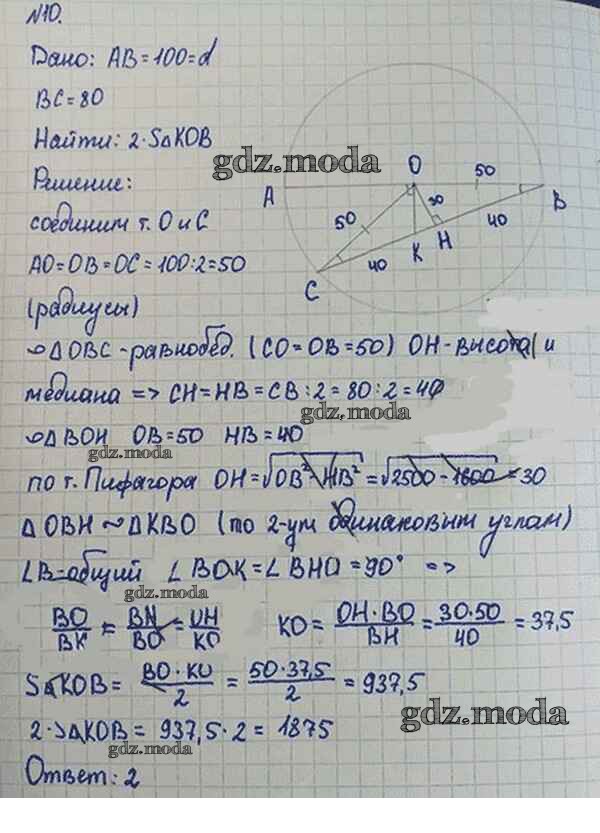 N10.
Дано: AB = 100 = d
BC = 80
Найти: 2·S△KOB
gdz.moda
Решение:
соединим т. O и C
AO = OB = OC = 100:2 = 50
(радиусы)
O
50
A
B
50
30
40
K H
40
C
△OBC - равнобед. (CO = OB = 50) OH - высота (и
медиана => CH = HB = CB:2 = 80:2 = 40
gdz.moda
△BOH OB = 50 HB = 40
gdz.moda
по т. Пифагора OH = √OB² - HB² = √2500 - 1600 = 30
△OBH ~ △KBO (по 2-ум одинаковым углам)
∠B - общий ∠BOK = ∠BHO = 90° =>
gdz.moda
BO/BK = BH/BO = OH/KO KO = OH·BO/BH = 30·50/40 = 37,5
S△KOB = BO·KO/2 = 50·37,5/2 = 937,5
gdz.moda
2·S△KOB = 937,5·2 = 1875
gdz.moda
Ответ: 2